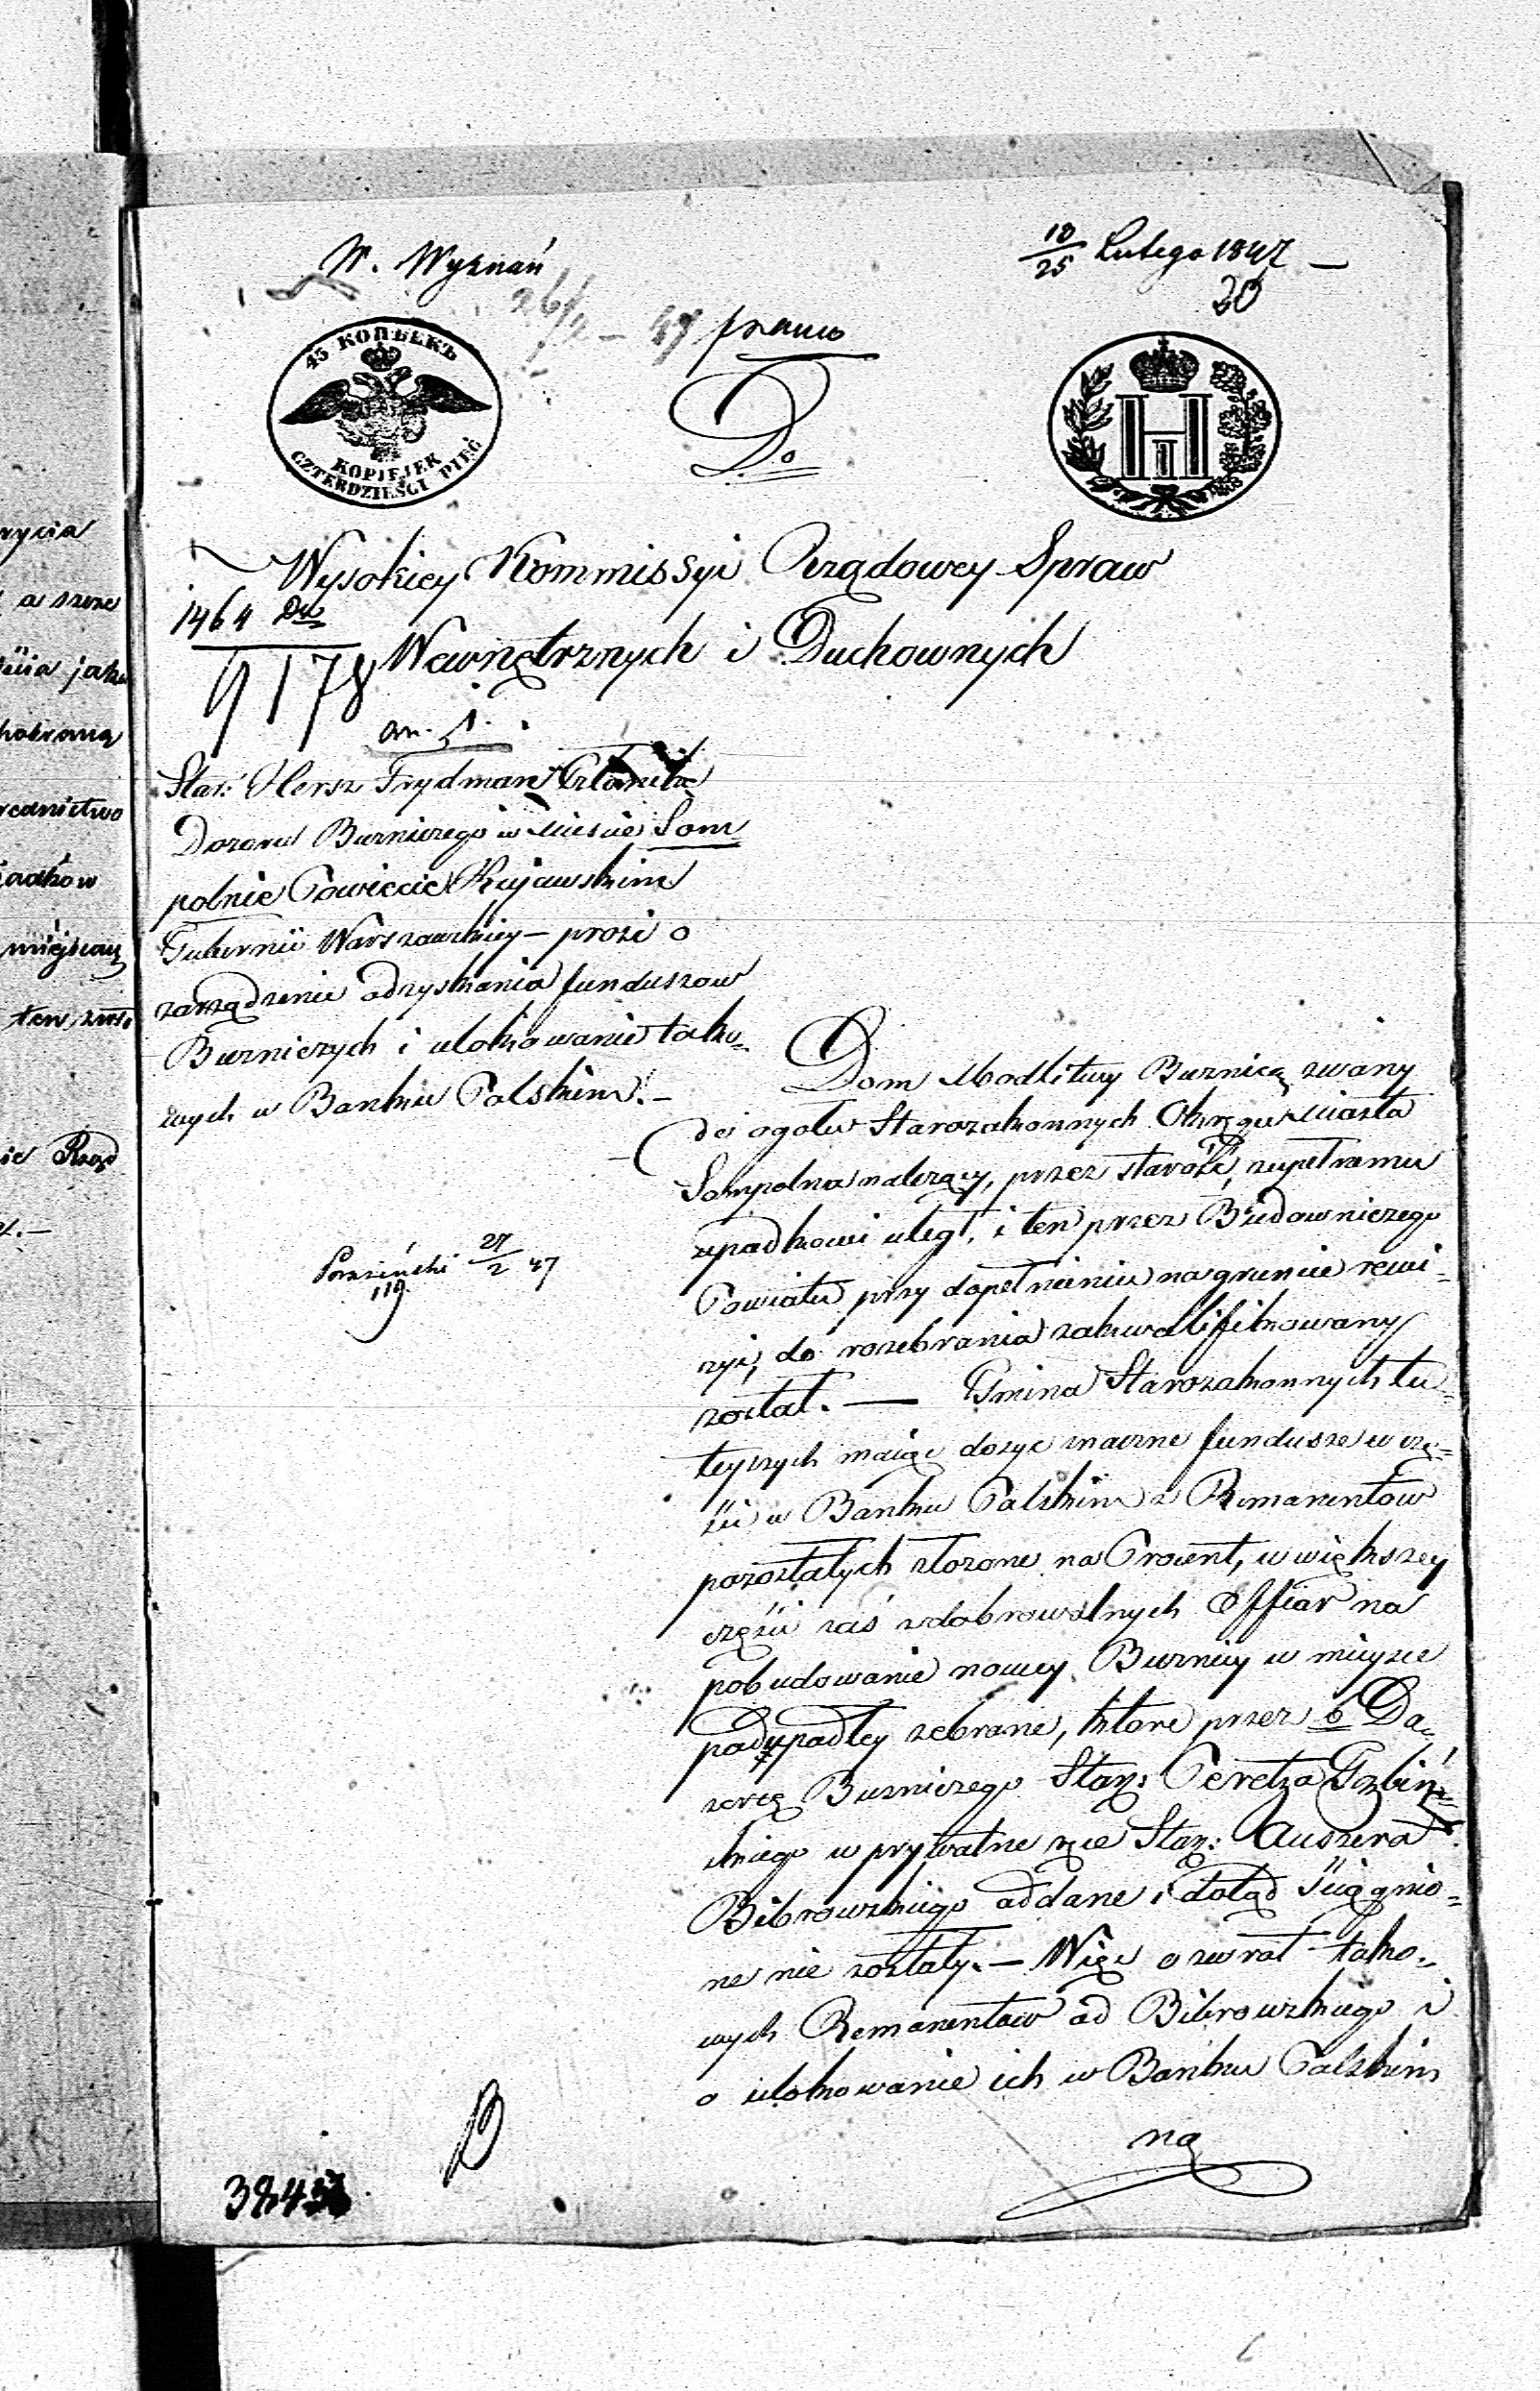 W. Wyznań
18/25 Lutego 1847
20
26/2 - 47 franco
45 КОПѢЕКЪ
KOPIEJEK
CZTERDZIEŚCI PIĘĆ
Do
Wysokiey Kommissyi Rządowey Spraw
Wewnętrznych i Duchownych
1464
9178
an. 1.
Star: Hersz Frydman Członek
Dozoru Bużniczego w Mieście Som
polnie Powiecie Kujawskim
Gubernii Warszawskiey – prosi o
zarządzenie odzyskania funduszow
Bużniczych i ulokowanie tako-
wych w Banku Polskim. –
27/2 47
Dom Modlitwy Bużnicą zwany
do ogołu Starozakonnych Okręgu Miasta
Sompolna należący, przez starość, zupełnemu
upadkowi uległ, i ten przez Budowniczego
Powiatu przy dopełnieniu na gruncie rewi-
zyi, do rozebrania zakwalifikowany
został. — Gmina Starozakonnych tu-
teyszych maiąc dosyc znaczne fundusze w czę-
ści w Banku Polskim z Remanentow
pozostałych złozone na Procent, w większey
części zaś z dobrowolnych Offiar na
pobudowanie nowey Bużnicy w mieysce
podupadłey zebrane, ktore przez b Do-
zorcę Bużniczego Staroz: Peretza Gąbiń-
skiego w prywatne ręce Staroz: Auszera
Bibrowskiego oddane i dotąd ściągnio-
ne nie zostały. – Więc o zwrot tako-
wych Remanentow od Bibrowskiego i
o ulokowanie ich w Banku Polskim
na
3843
rycia
a szcze
jako
miejscu
ten